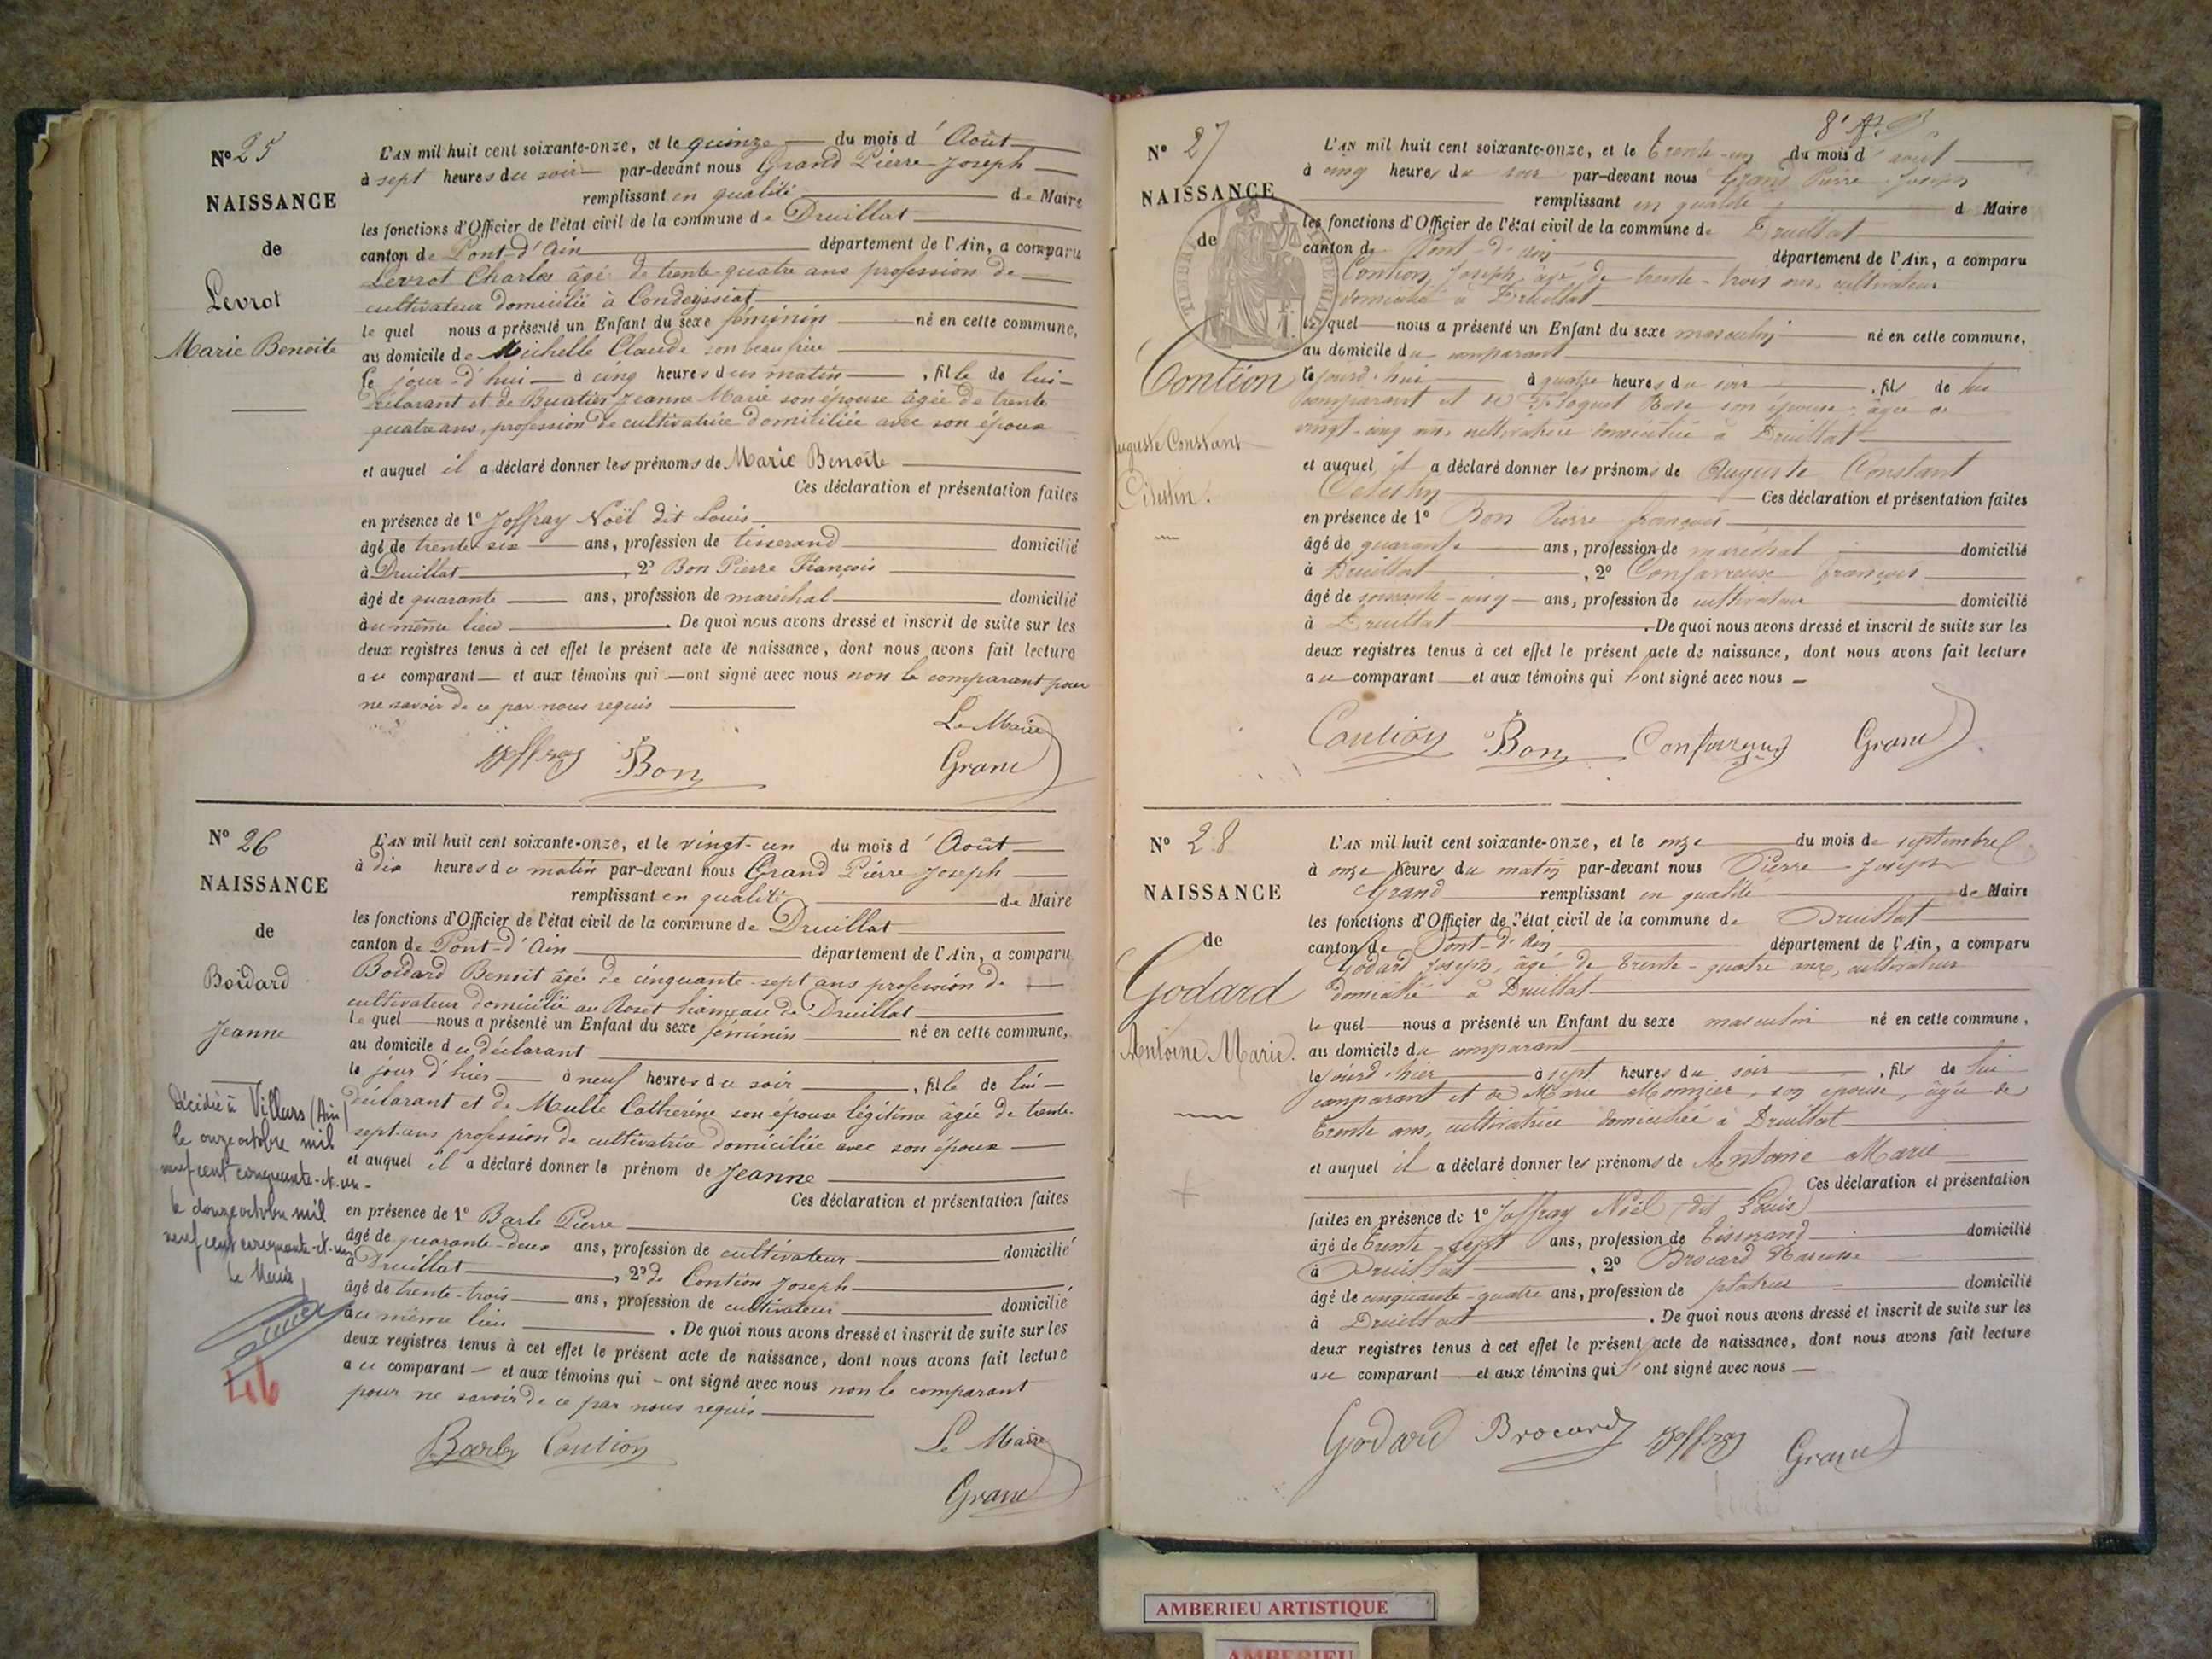 Nº 25
NAISSANCE
de
Levrot
Marie Benoite
L'AN mil huit cent soixante-onze, et le quinze du mois d'Août
à sept heures du soir par-devant nous Grand Pierre Joseph
remplissant en qualité de Maire
les fonctions d'Officier de l'état civil de la commune de Druillat
canton de Pont-d'Ain département de l'Ain, a comparu
Levrot Charles âgé de trente quatre ans profession de
cultivateur domicilié à Condeyssiat
le quel nous a présenté un Enfant du sexe féminin né en cette commune,
au domicile de Michelle Claude son beau frère
le jour d'hui à cinq heures du matin, fille de lui
déclarant et de Buatier Jeanne Marie son épouse âgée de trente
quatre ans, profession de cultivatrice domiciliée avec son époux
et auquel il a déclaré donner les prénoms de Marie Benoîte
Ces déclaration et présentation faites
en présence de 1º Joffray Noël dit Louis
âgé de trente six ans, profession de tisserand domicilié
à Druillat, 2º Bon Pierre François
âgé de quarante ans, profession de maréchal domicilié
au même lieu. De quoi nous avons dressé et inscrit de suite sur les
deux registres tenus à cet effet le présent acte de naissance, dont nous avons fait lecture
au comparant et aux témoins qui ont signé avec nous non le comparant pour
ne savoir de ce par nous requis
Le Maire
Joffray Bon Grand
Nº 26
NAISSANCE
de
Boidard
Jeanne
Décédée à Villars (Ain)
le onze octobre mil
neuf cent cinquante-et-un-
le douze octobre mil
neuf cent cinquante-et-un
Le Maire
L'AN mil huit cent soixante-onze, et le vingt-un du mois d'Août
à dix heures du matin par-devant nous Grand Pierre Joseph
remplissant en qualité de Maire
les fonctions d'Officier de l'état civil de la commune de Druillat
canton de Pont-d'Ain département de l'Ain, a comparu
Boidard Benoit âgé de cinquante-sept ans profession de
cultivateur domicilié au Roset hameau de Druillat
le quel nous a présenté un Enfant du sexe féminin né en cette commune,
au domicile du déclarant
le jour d'hier à neuf heures du soir, fille de lui
déclarant et de Mulle Catherine son épouse légitime âgée de trente-
sept ans profession de cultivatrice domiciliée avec son époux
et auquel il a déclaré donner le prénom de Jeanne
Ces déclaration et présentation faites
en présence de 1º Barbe Pierre
âgé de quarante-deux ans, profession de cultivateur domicilié
à Druillat, 2º de Contion Joseph
âgé de trente-trois ans, profession de cultivateur domicilié
au même lieu. De quoi nous avons dressé et inscrit de suite sur les
deux registres tenus à cet effet le présent acte de naissance, dont nous avons fait lecture
au comparant et aux témoins qui ont signé avec nous non le comparant
pour ne savoir de ce par nous requis
Barbe Contion Le Maire
Grand
Nº 27
NAISSANCE
de
Contion
Auguste Constant
Célestin.
L'AN mil huit cent soixante-onze, et le trente-un du mois d'août
à cinq heures du soir par-devant nous Grand Pierre Joseph
remplissant en qualité de Maire
les fonctions d'Officier de l'état civil de la commune de Druillat
canton de Pont-d'ain département de l'Ain, a comparu
Contion Joseph, âgé de trente-trois ans, cultivateur
domicilié à Druillat
le quel nous a présenté un Enfant du sexe masculin né en cette commune,
au domicile du comparant
le jourd'hui à quatre heures du soir, fils de lui
comparant et de Floquet Rose son épouse, âgée de
vingt-cinq ans, cultivatrice domiciliée à Druillat
et auquel il a déclaré donner les prénoms de Auguste Constant
Célestin Ces déclaration et présentation faites
en présence de 1º Bon Pierre françois
âgé de quarante ans, profession de maréchal domicilié
à Druillat, 2º Confavreux françois
âgé de soixante-cinq ans, profession de cultivateur domicilié
à Druillat. De quoi nous avons dressé et inscrit de suite sur les
deux registres tenus à cet effet le présent acte de naissance, dont nous avons fait lecture
au comparant et aux témoins qui ont signé avec nous
Contion Bon Confavreux Grand
Nº 28
NAISSANCE
de
Godard
Antoine Marie.
L'AN mil huit cent soixante-onze, et le onze du mois de septembre
à onze heures du matin par-devant nous Pierre Joseph
Grand remplissant en qualité de Maire
les fonctions d'Officier de l'état civil de la commune de Druillat
canton de Pont-d'Ain département de l'Ain, a comparu
Godard Joseph, âgé de trente-quatre ans, cultivateur
domicilié à Druillat
le quel nous a présenté un Enfant du sexe masculin né en cette commune,
au domicile du comparant
le jourd'hier à sept heures du soir, fils de lui
comparant et de Marie Monnier, son épouse, âgée de
trente ans, cultivatrice domiciliée à Druillat
et auquel il a déclaré donner les prénoms de Antoine Marie
Ces déclaration et présentation
faites en présence de 1º Joffray Noël (dit Louis)
âgé de trente-sept ans, profession de tisserand domicilié
à Druillat, 2º Brocard
âgé de cinquante-quatre ans, profession de plâtrier domicilié
à Druillat. De quoi nous avons dressé et inscrit de suite sur les
deux registres tenus à cet effet le présent acte de naissance, dont nous avons fait lecture
au comparant et aux témoins qui ont signé avec nous
Godard Brocard Joffray Grand
AMBERIEU ARTISTIQUE
AMBERIEU